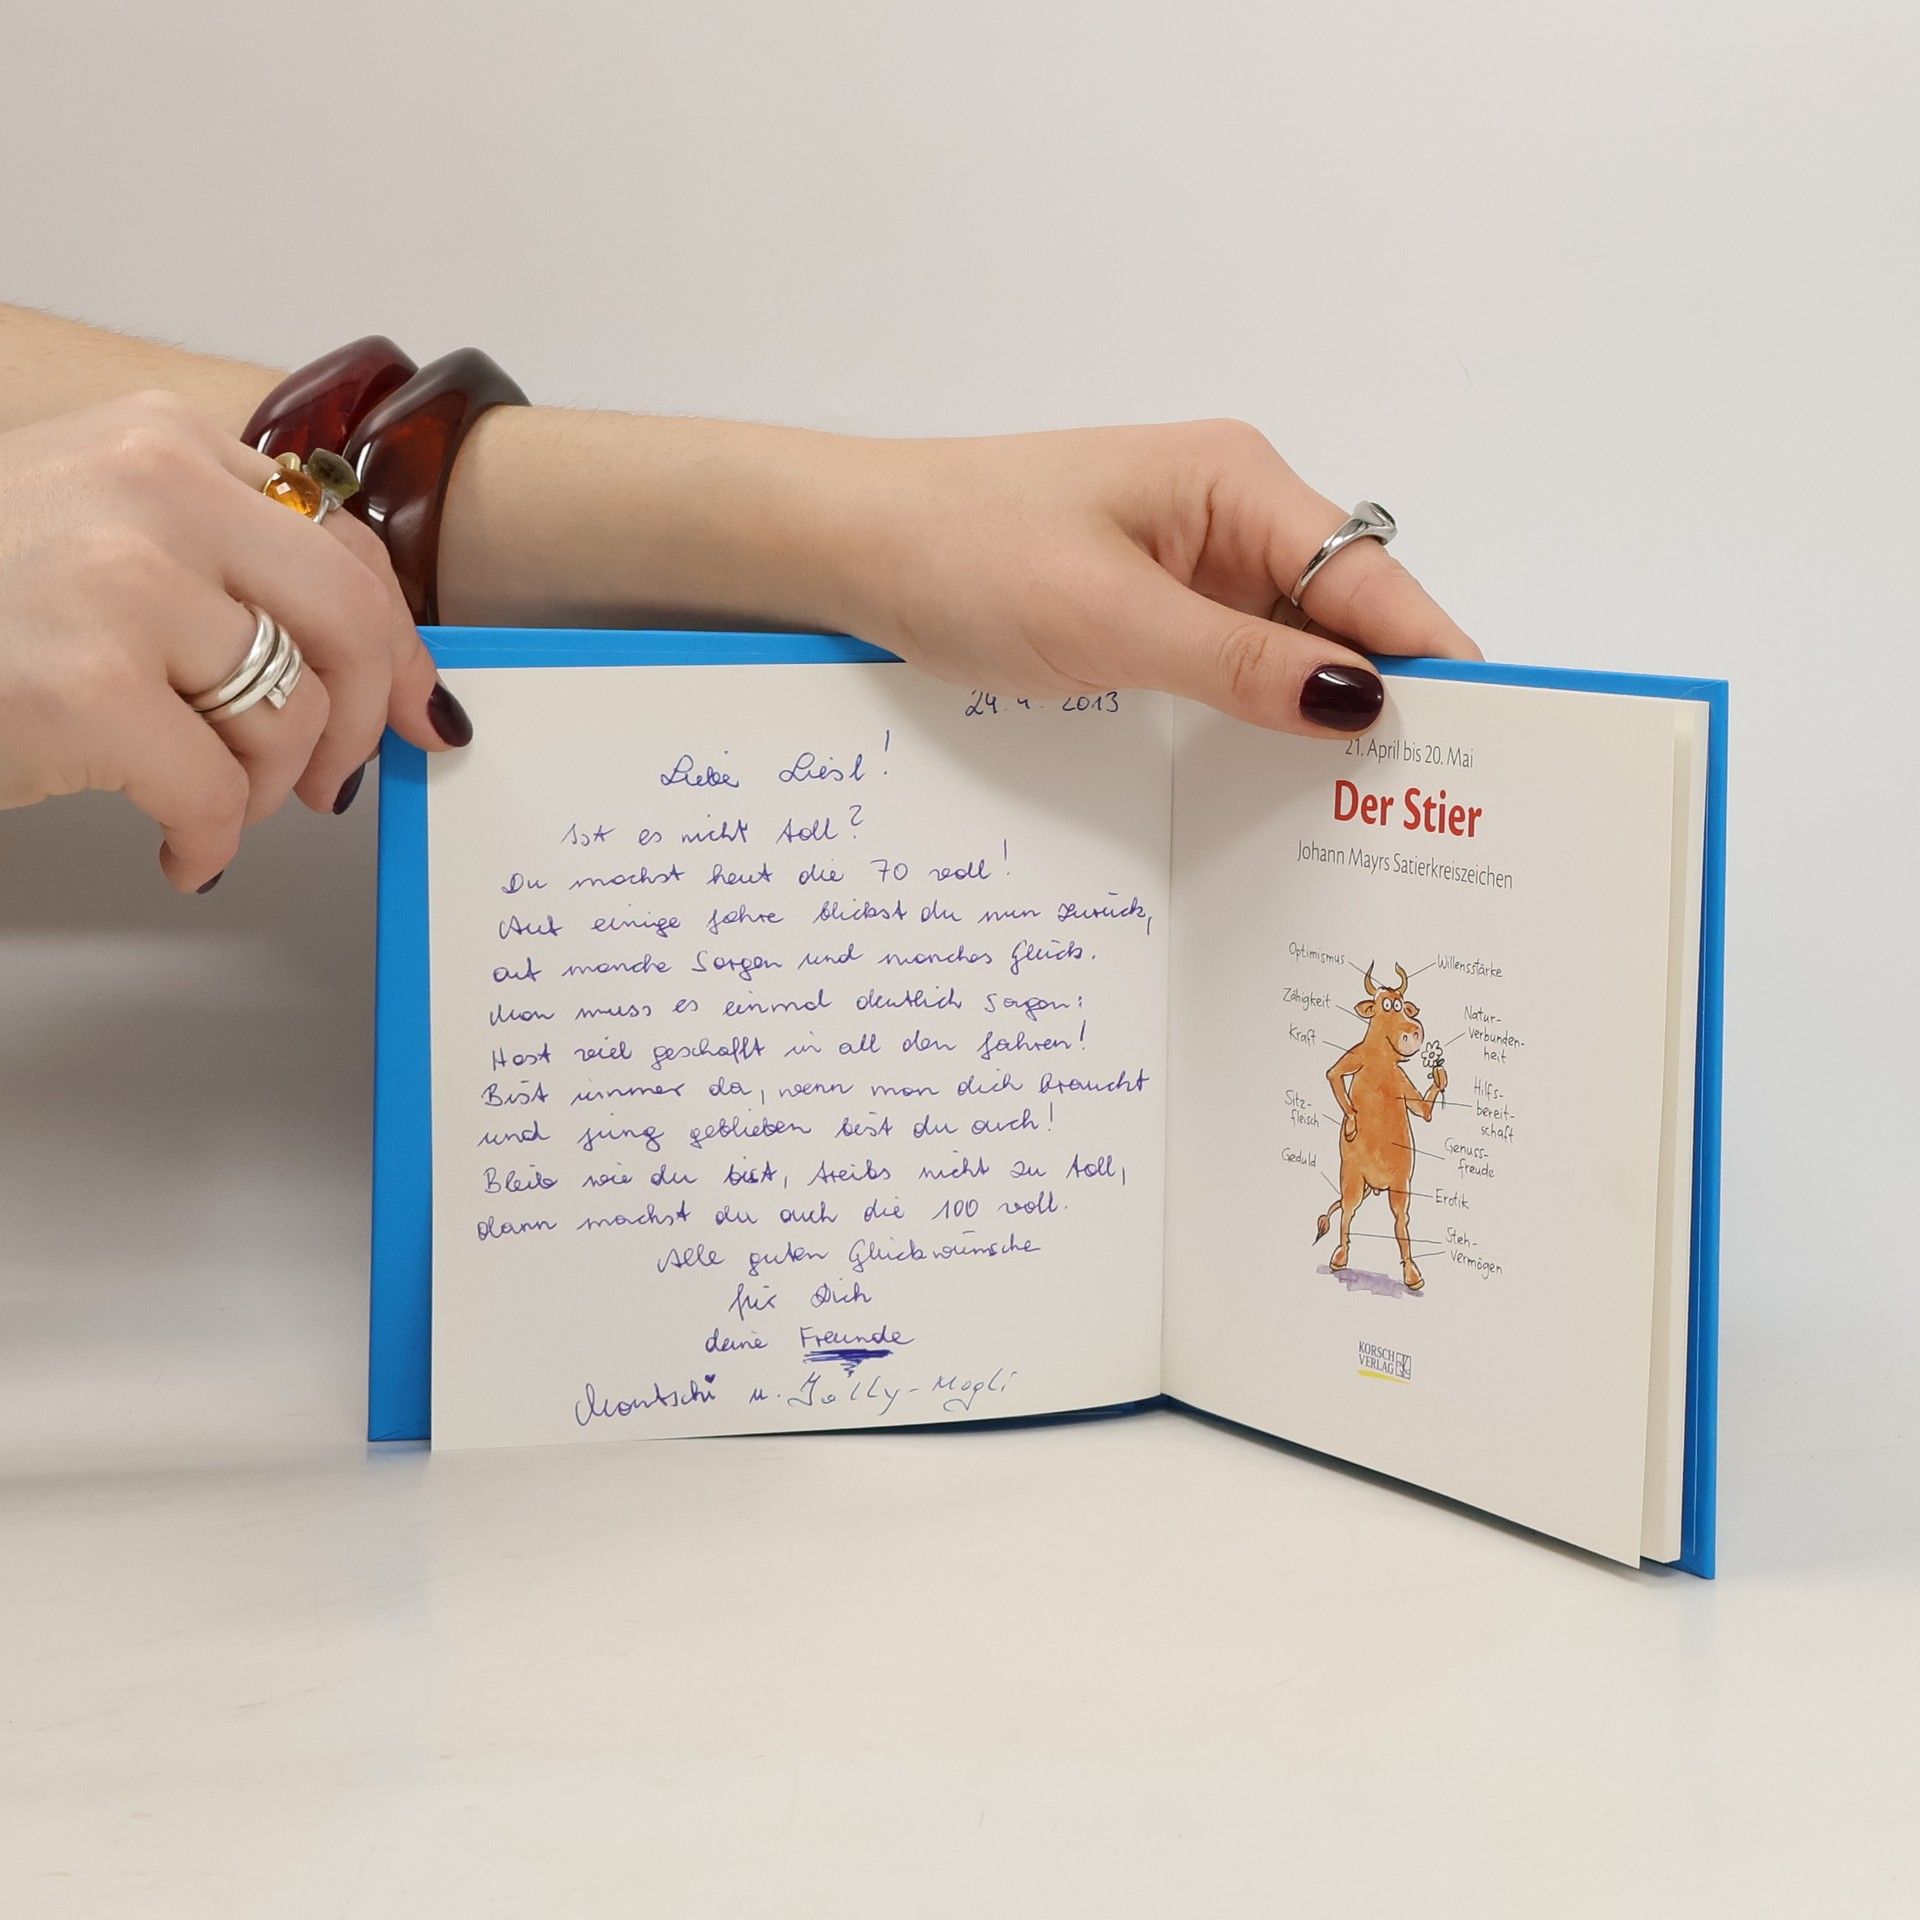 24. 4. 2013
Liebe Liesl!
Ist es nicht toll?
Du machst heut die 70 voll!
Auf einige Jahre blickst du nun zurück,
auf manche Sorgen und manches Glück.
Man muss es einmal deutlich sagen:
Hast viel geschafft in all den Jahren!
Bist immer da, wenn man dich braucht
und jung geblieben bist du auch!
Bleib wie du bist, treibs nicht zu toll,
dann machst du auch die 100 voll.
Alle guten Glückwünsche
für Dich
deine Freunde
Montschi u. Jolly-Mogli
21. April bis 20. Mai
Der Stier
Johann Mayrs Satierkreiszeichen
Optimismus
Willensstärke
Zähigkeit
Natur-
verbunden-
heit
Kraft
Hilfs-
bereit-
schaft
Sitz-
fleisch
Genuss-
freude
Geduld
Erotik
Steh-
vermögen
KORSCH
VERLAG